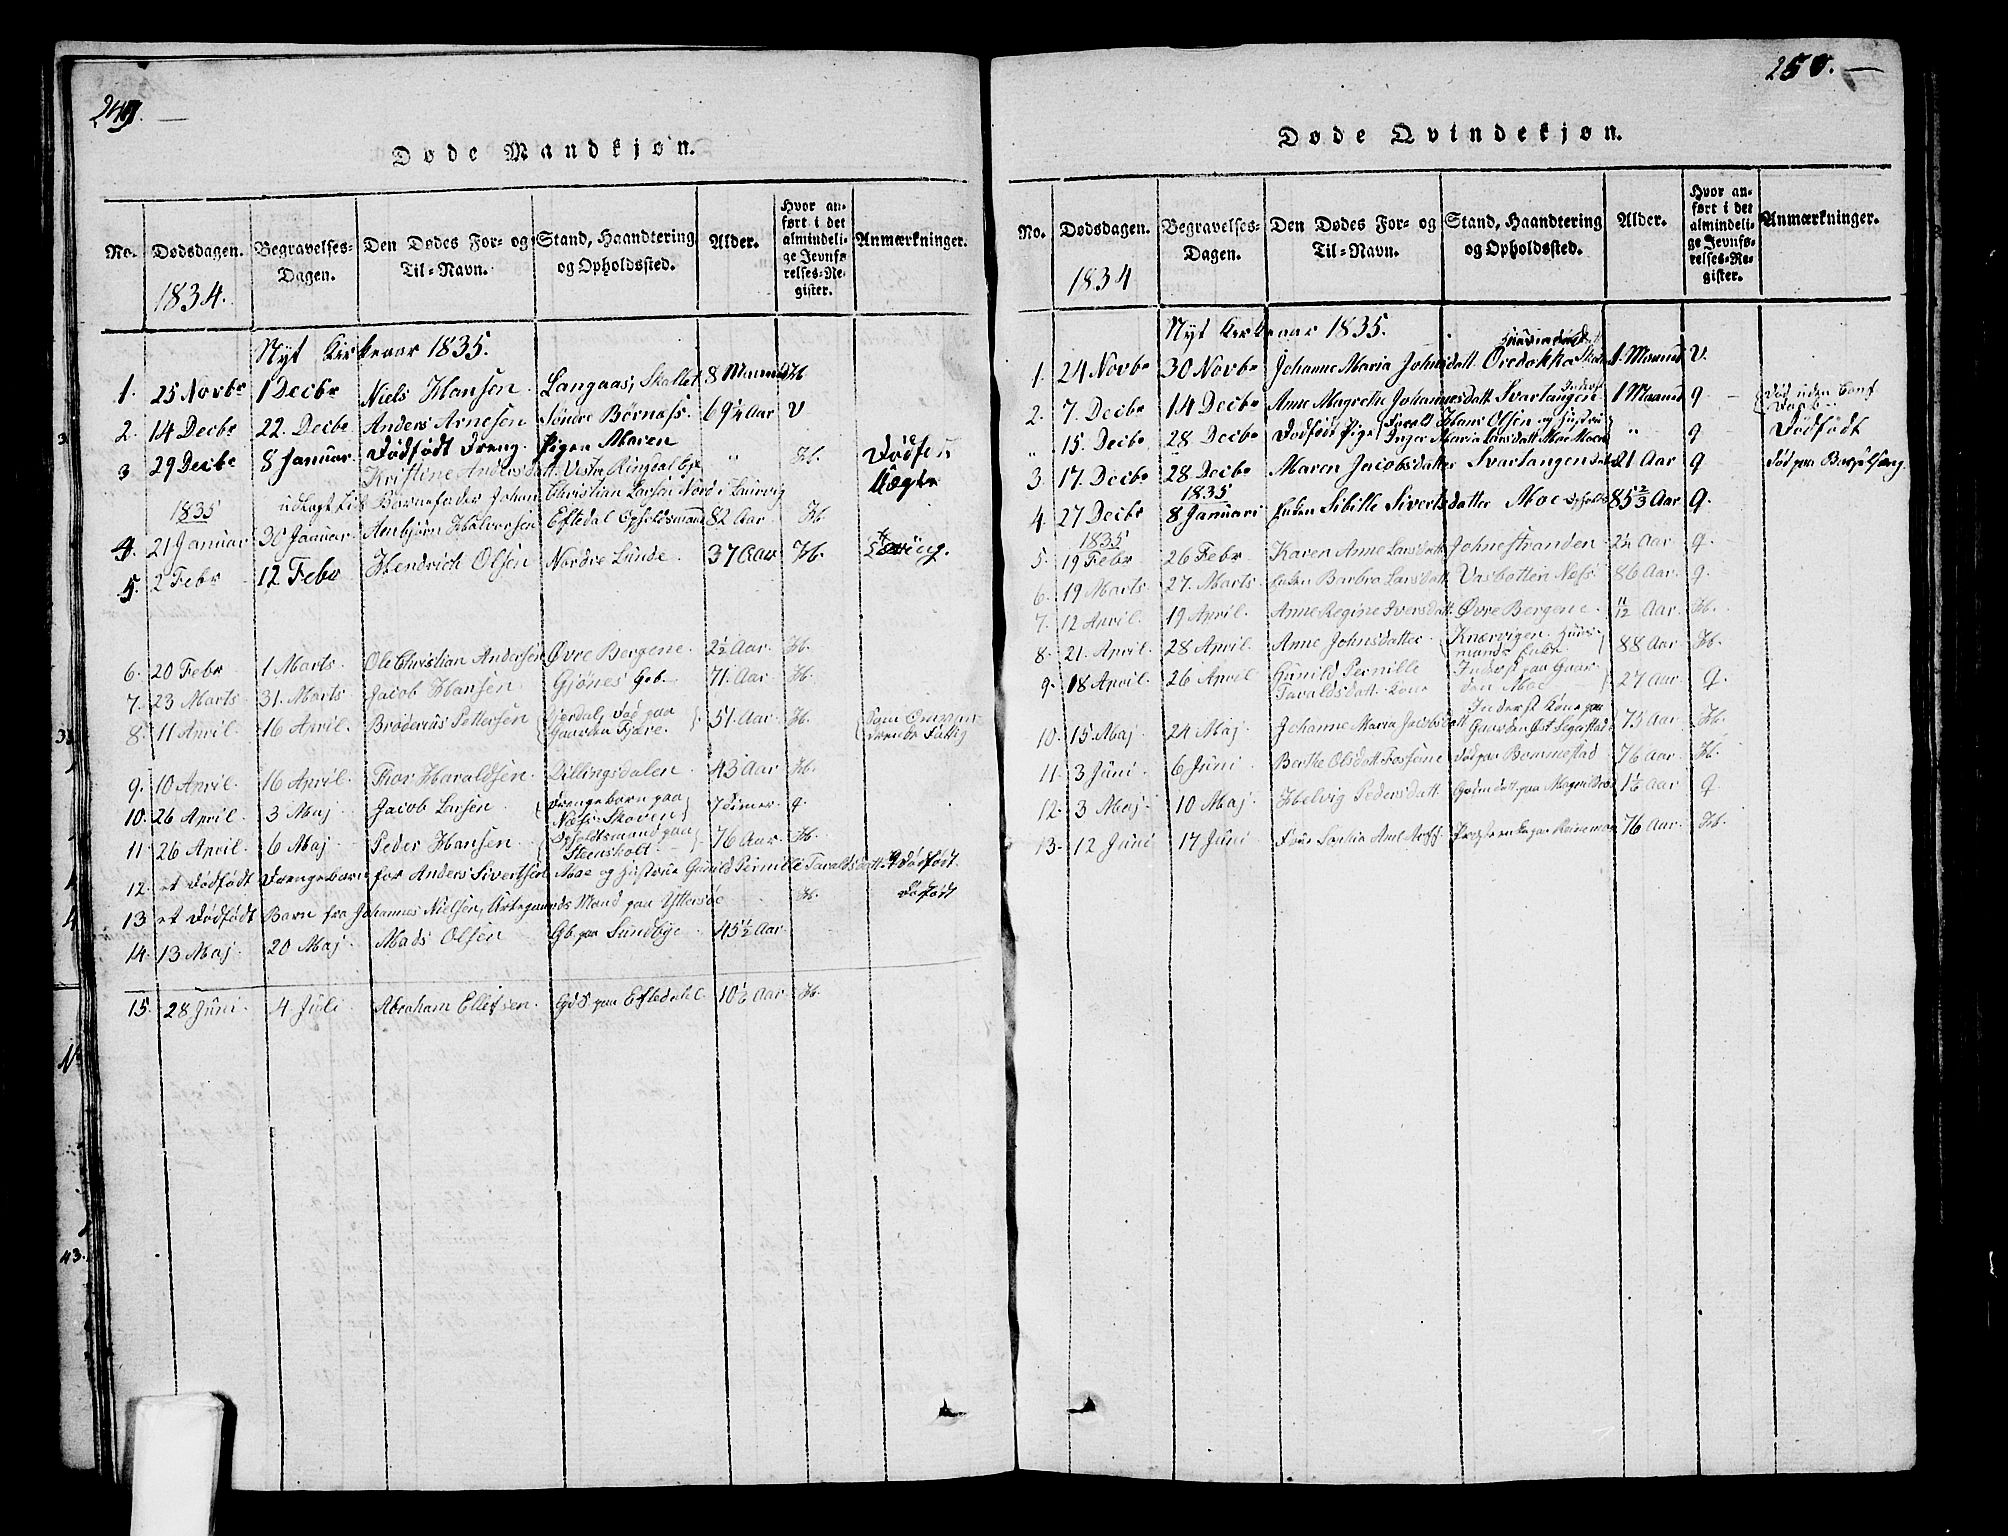 249.
Døde Mandkjøn.
No. Dødsdagen. Begravelses-Dagen. Den Dødes For- og Til-Navn. Stand, Haandtering og Opholdssted. Alder. Hvor anført i det almindelige Jevnførelses-Register. Anmærkninger.
1834.
Nyt Kirkeaar 1835.
1. 25 Novbr 1 Decbr Niels Hansen Langaas, Skallet 8 Maaned H
2. 14 Decbr 22. Decbr Anders Arnesen Söndre Börnæss. 69¼ Aar V
3 29 Decbr 8 Januar. Dödfödt Dreng. Pigen Maren " H. Dödfödt
Kristine Andersdatt. Vestre Ringdal
1835 udlagt til Barnefader Johan Christian Larsen Nord i Laurvig
4. 21 Januar 30 Januar. Ambjörn Halvorsen Eftedal Opholdsmand 82 Aar. H
5. 2 Febr 12 Febr Hendrich Olsen Nordre Lunde. 37 Aar H.
6. 20 Febr 1 Marts. Ole Christian Andersen Øvre Bergene. 2½ Aar. H.
7. 23 Marts 31. Marts Jacob Hansen Gjönes Gb. 71. Aar H.
8. 11 April. 16 April. Broderus Pettersen død paa 51. Aar H.
Gaarden Fjære.
9. 10 April. 16 April. Thor Haraldsen Dillingsdalen 43 Aar H.
10. 26 April. 3 Maj Jacob Larsen Drengebarn paa 7 Timer. 9.
Næss Skoven
11. 26 April. 6 Maj Peder Hansen Opholdsmand paa 76 Aar. H
Steensholt.
12. et Dödfödt Drengebarn for Anders Sivertsen Moe og Hustrue Gunild Pernille Taraldsdatt. 9 Dödfödt.
13 et Dödfödt Barn fra Johannes Nielsen, Mand paa Yttersöe H. Dödfödt
14. 13 Maj 20 Maj Mads Olsen Gb. paa Sundbye 45½ Aar
15. 28 Juni 4 Juli Abraham Ellefsen. Gds paa Eftedahl. 10½ Aar H.
250.
Døde Qvindekjøn.
No. Dødsdagen. Begravelses-Dagen. Den Dødes For- og Til-Navn. Stand, Haandtering og Opholdssted. Alder. Hvor anført i det almindelige Jevnførelses-Register. Anmærkninger.
1834
Nyt Kirkeaar 1835.
1. 24 Novbr 30 Novbr Johanne Maria Johnsdatt. 1 Maaned V.
2. 7. Decbr 14 Decbr Anne Magrethe Johannesdatt. Svartangen 1 Maaned 9 Död uden
Daab
" 15. Decbr 28 Decbr Dödfödt Pige Hans Olsen og Hustru " 9 Dödfödt
Inger Maria Larsdatt. Moe
3. 17. Decbr 28 Decbr Maren Jacobsdatter Svartangen 21 Aar 9 död paa Barselseng.
1835
4. 27 Decbr 8 Januari Enken Sibille Sivertsdatter Moe 85⅔ Aar 9.
1835
5. 19 Febr 26 Febr Karen Anne Larsdatt. Johnestranden 2¼ Aar 9.
6. 19 Marts 27. Marts Enken Barbra Larsdatt. Vasbotten Næss 86 Aar. 9.
7. 12 April. 19 April. Anne Regine Iversdatt. Øvre Bergene. 11/12 Aar. H.
8. 21. April. 28 April. Anne Johnsdatter Knærvigen. Huusmands Enke 88 Aar H.
9. 18 April. 26 April Gunild Pernille Inderst paa Gaarden Moe 27 Aar. 9.
Taraldsdatt. Kone
Inderst Kone paa
10. 15. Maj. 24 Maj. Johanne Maria Jacobsdatt. Gaarden Øst. 75 Aar. H.
11. 3 Juni 6 Juni Berthe Olsdatt. död paa Bommestad 76 Aar. H.
12. 3 Maj. 10 Maj. Helvig Pedersdatt. 1½ Aar 9
13. 12 Juni 17 Juni 76 Aar. H.
43.